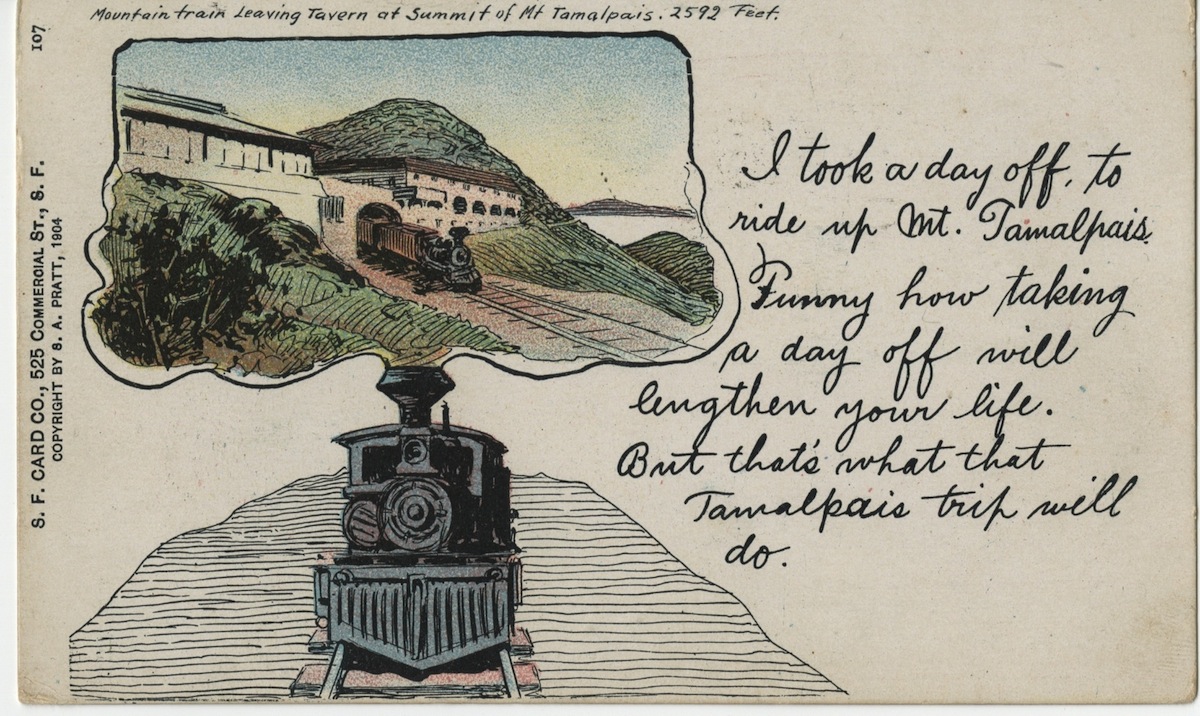 Mountain train Leaving Tavern at Summit of Mt Tamalpais. 2592 Feet.
107
S. F. CARD CO., 525 COMMERCIAL ST., S. F.
COPYRIGHT BY S. A. PRATT, 1904
I took a day off, to
ride up Mt. Tamalpais.
Funny how taking
a day off will
lengthen your life.
But that's what that
Tamalpais trip will
do.